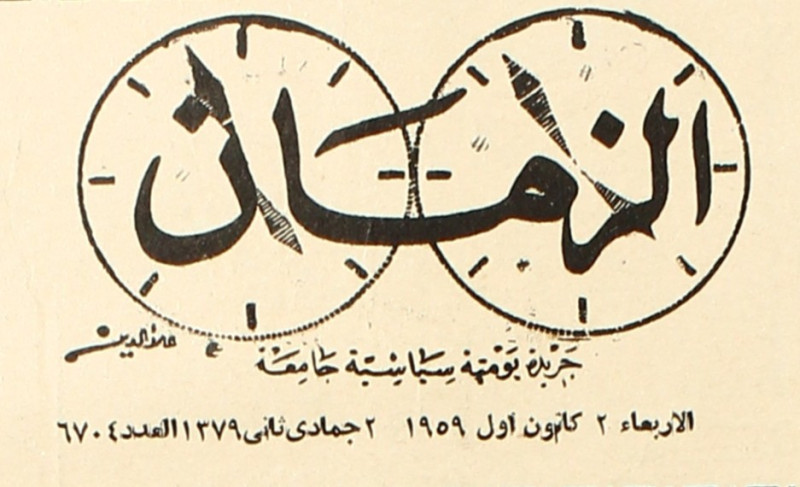 الزمان
علاءالدين
جريدة يومية سياسية جامعة
الاربعاء ٢ كانون اول ١٩٥٩ ٢ جمادى ثانى ١٣٧٩ العدد ٦٧٠٤